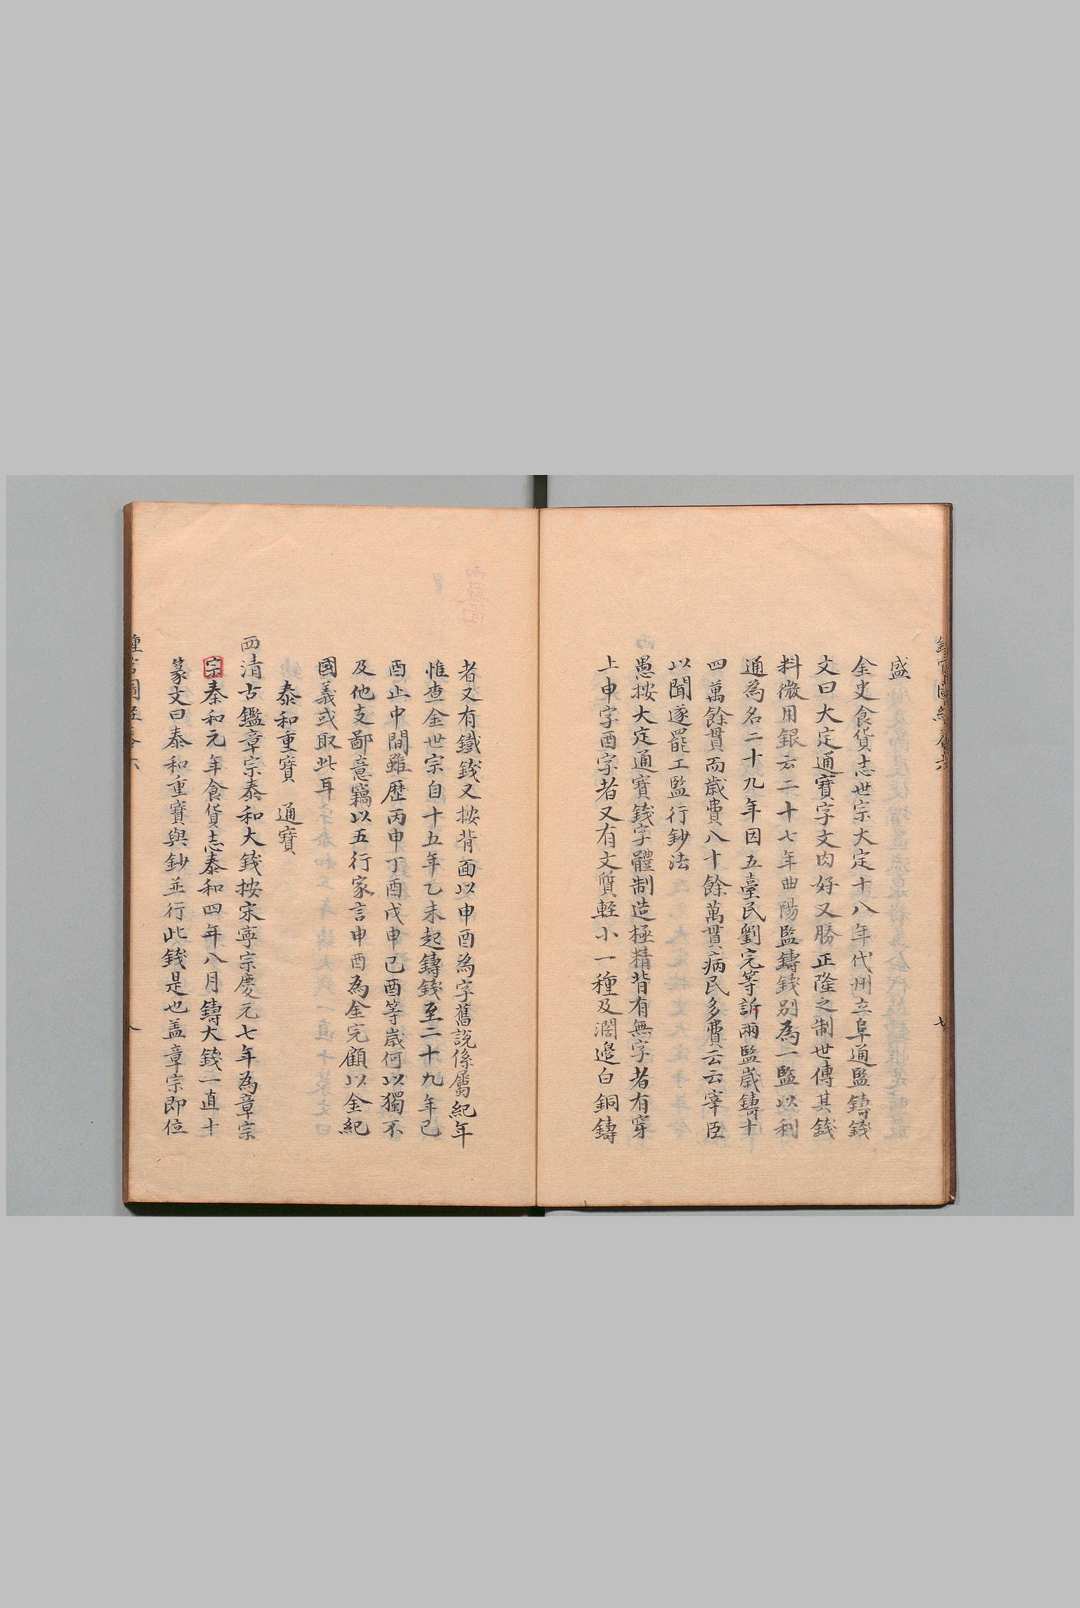 盛
金史食貨志世宗大定十八年代州立阜通監鑄錢
文曰大定通寳字文肉好又勝正隆之制世傳其錢
料微用銀云二十七年曲陽監鑄錢别為一監以利
通為名二十九年因五臺民劉完等訴兩監歲鑄十
四萬餘貫而歲費八十餘萬貫病民多費云云宰臣
以聞遂罷工監行鈔法
愚按大定通寳錢字體制造極精背有無字者有穿
上申字酉字者又有文質輕小一種及濶邉白銅鑄
者又有鐵錢又按背面以申酉為字舊說係屬紀年
惟查金世宗自十五年乙未起鑄錢至二十九年己
酉止中間雖歴丙申丁酉戊申己酉等歲何以獨不
及他支鄙意竊以五行家言申酉為金完顧以金紀
國義或取此耳
泰和重寳　通寳
西清古鑑章宗泰和大錢按宋寧宗慶元七年為章宗
宗泰和元年食貨志泰和四年八月鑄大錢一直十
篆文曰泰和重寳與鈔並行此錢是也盖章宗即位
鍾官圖經卷六